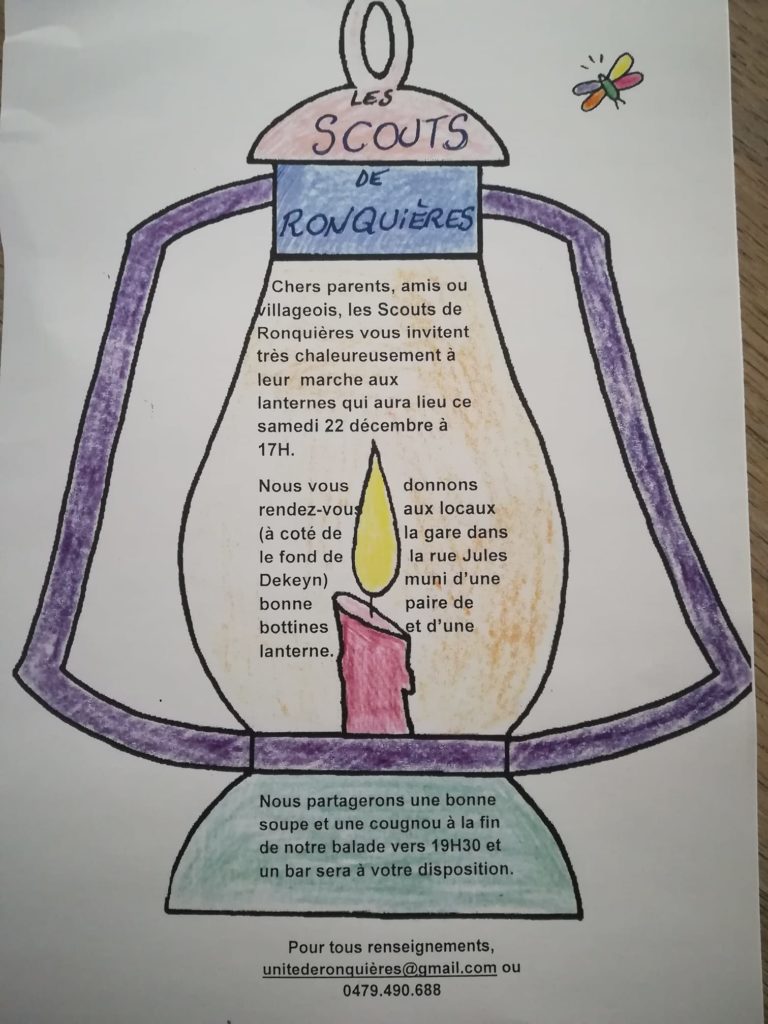 LES
SCOUTS
DE
RONQUIÈRES
Chers parents, amis ou
villageois, les Scouts de
Ronquières vous invitent
très chaleureusement à
leur marche aux
lanternes qui aura lieu ce
samedi 22 décembre à
17H.
Nous vous donnons
rendez-vous aux locaux
(à coté de la gare dans
le fond de la rue Jules
Dekeyn) muni d'une
bonne paire de
bottines et d'une
lanterne.
Nous partagerons une bonne
soupe et une cougnou à la fin
de notre balade vers 19H30 et
un bar sera à votre disposition.
Pour tous renseignements,
unitederonquières@gmail.com ou
0479.490.688